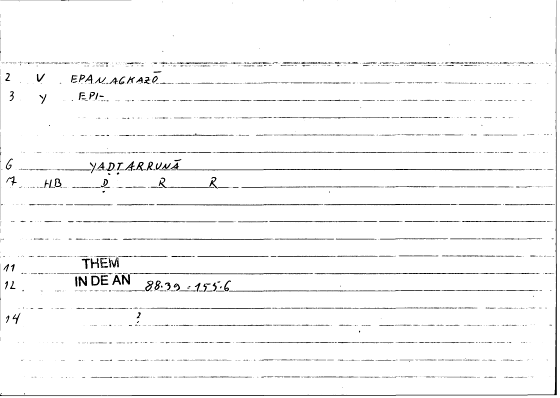 2 V EPANAGKAZŌ
3 Y EPI-
6 YAḌṬARRUNĀ
7 HB Ḍ R R
11 THEM
12 IN DE AN 88.39 - 155.6
14 ?